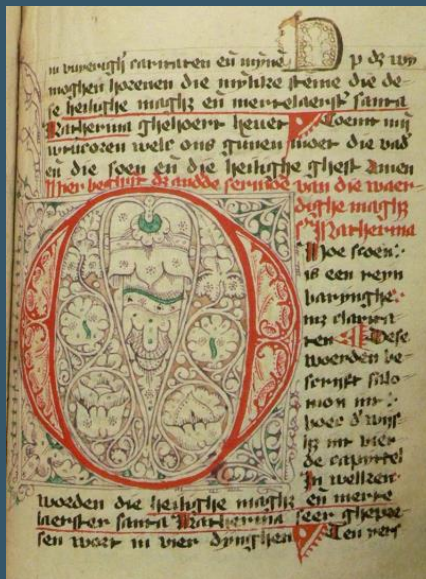 in vuerigh caritaten eñ mÿne Op dz wy
moghen horenen die mÿlike steme die de-
se heilighe maghz eñ mertelaerst santa
Katherina ghehoert heuet Coemt mÿ
wtucozen welc ons guẽn moet die vad'
eñ die soen eñ die heilighe ghest Amen
Hier beghĩt dz andde sermoẽ van die waer-
dighe maghz
sta Katherina
O hoe scoen
is een reyn
baringhe
mz clarita
ten Dese
woerden be-
scrijft salo-
mon int
boec d' wijs
hz int vier
de capittel
In welken
woerden die heilighe maghz eñ merte
laerster santa Katherina seer ghepre-
sen wort in vier dynghen Ten yers